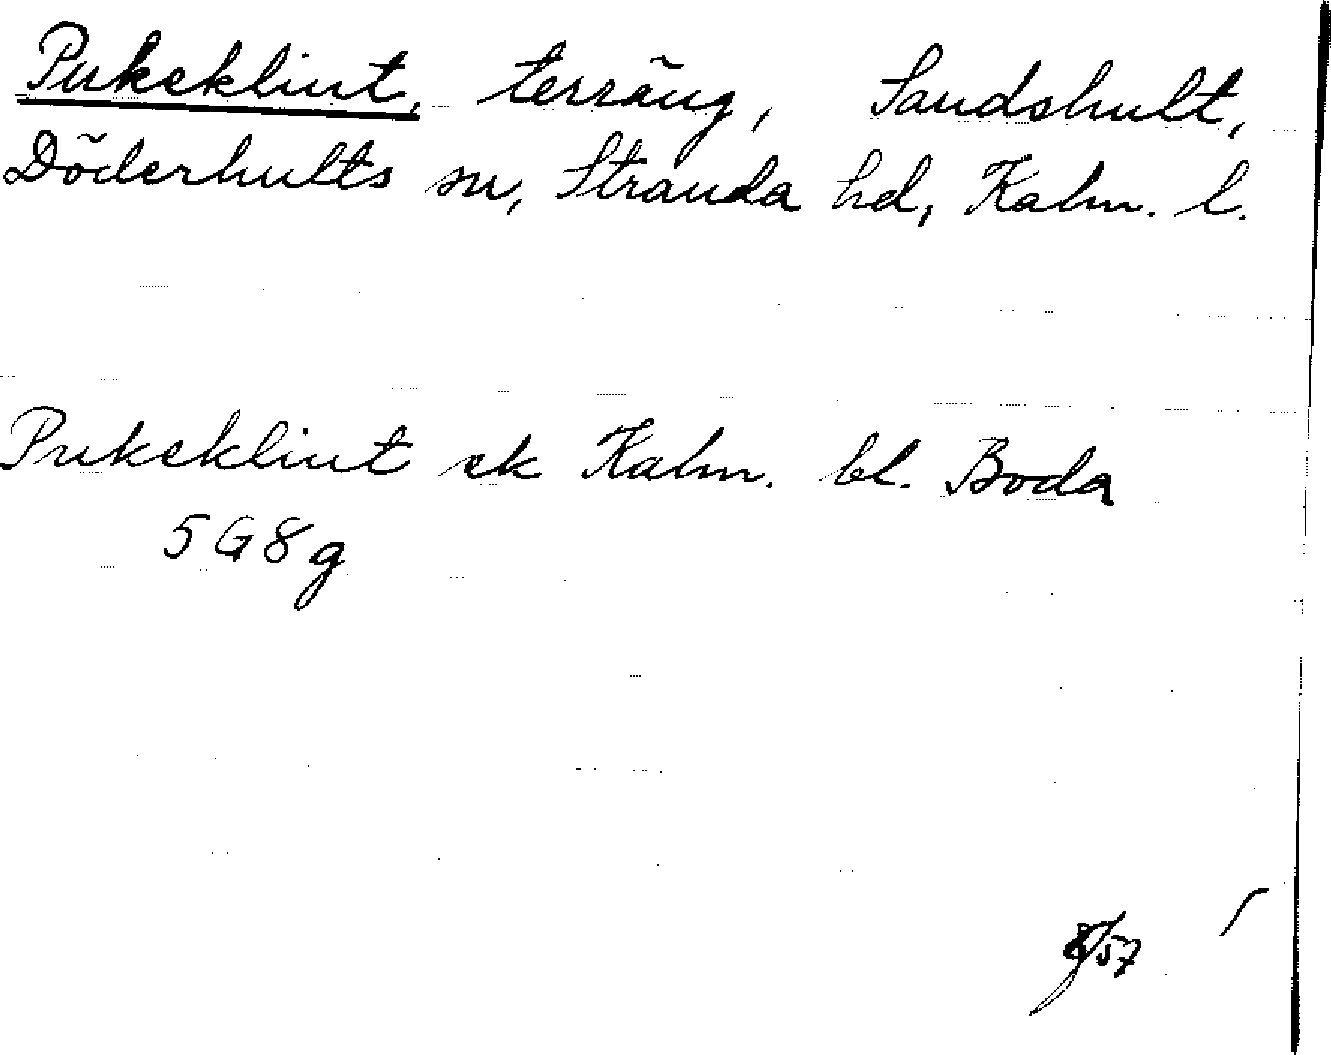 Pukeklint, terräng, Sandshult,
Döderhults sn, Stranda hd, Kalm. l.
Pukeklint ek Kalm. bl. Boda
5G8g